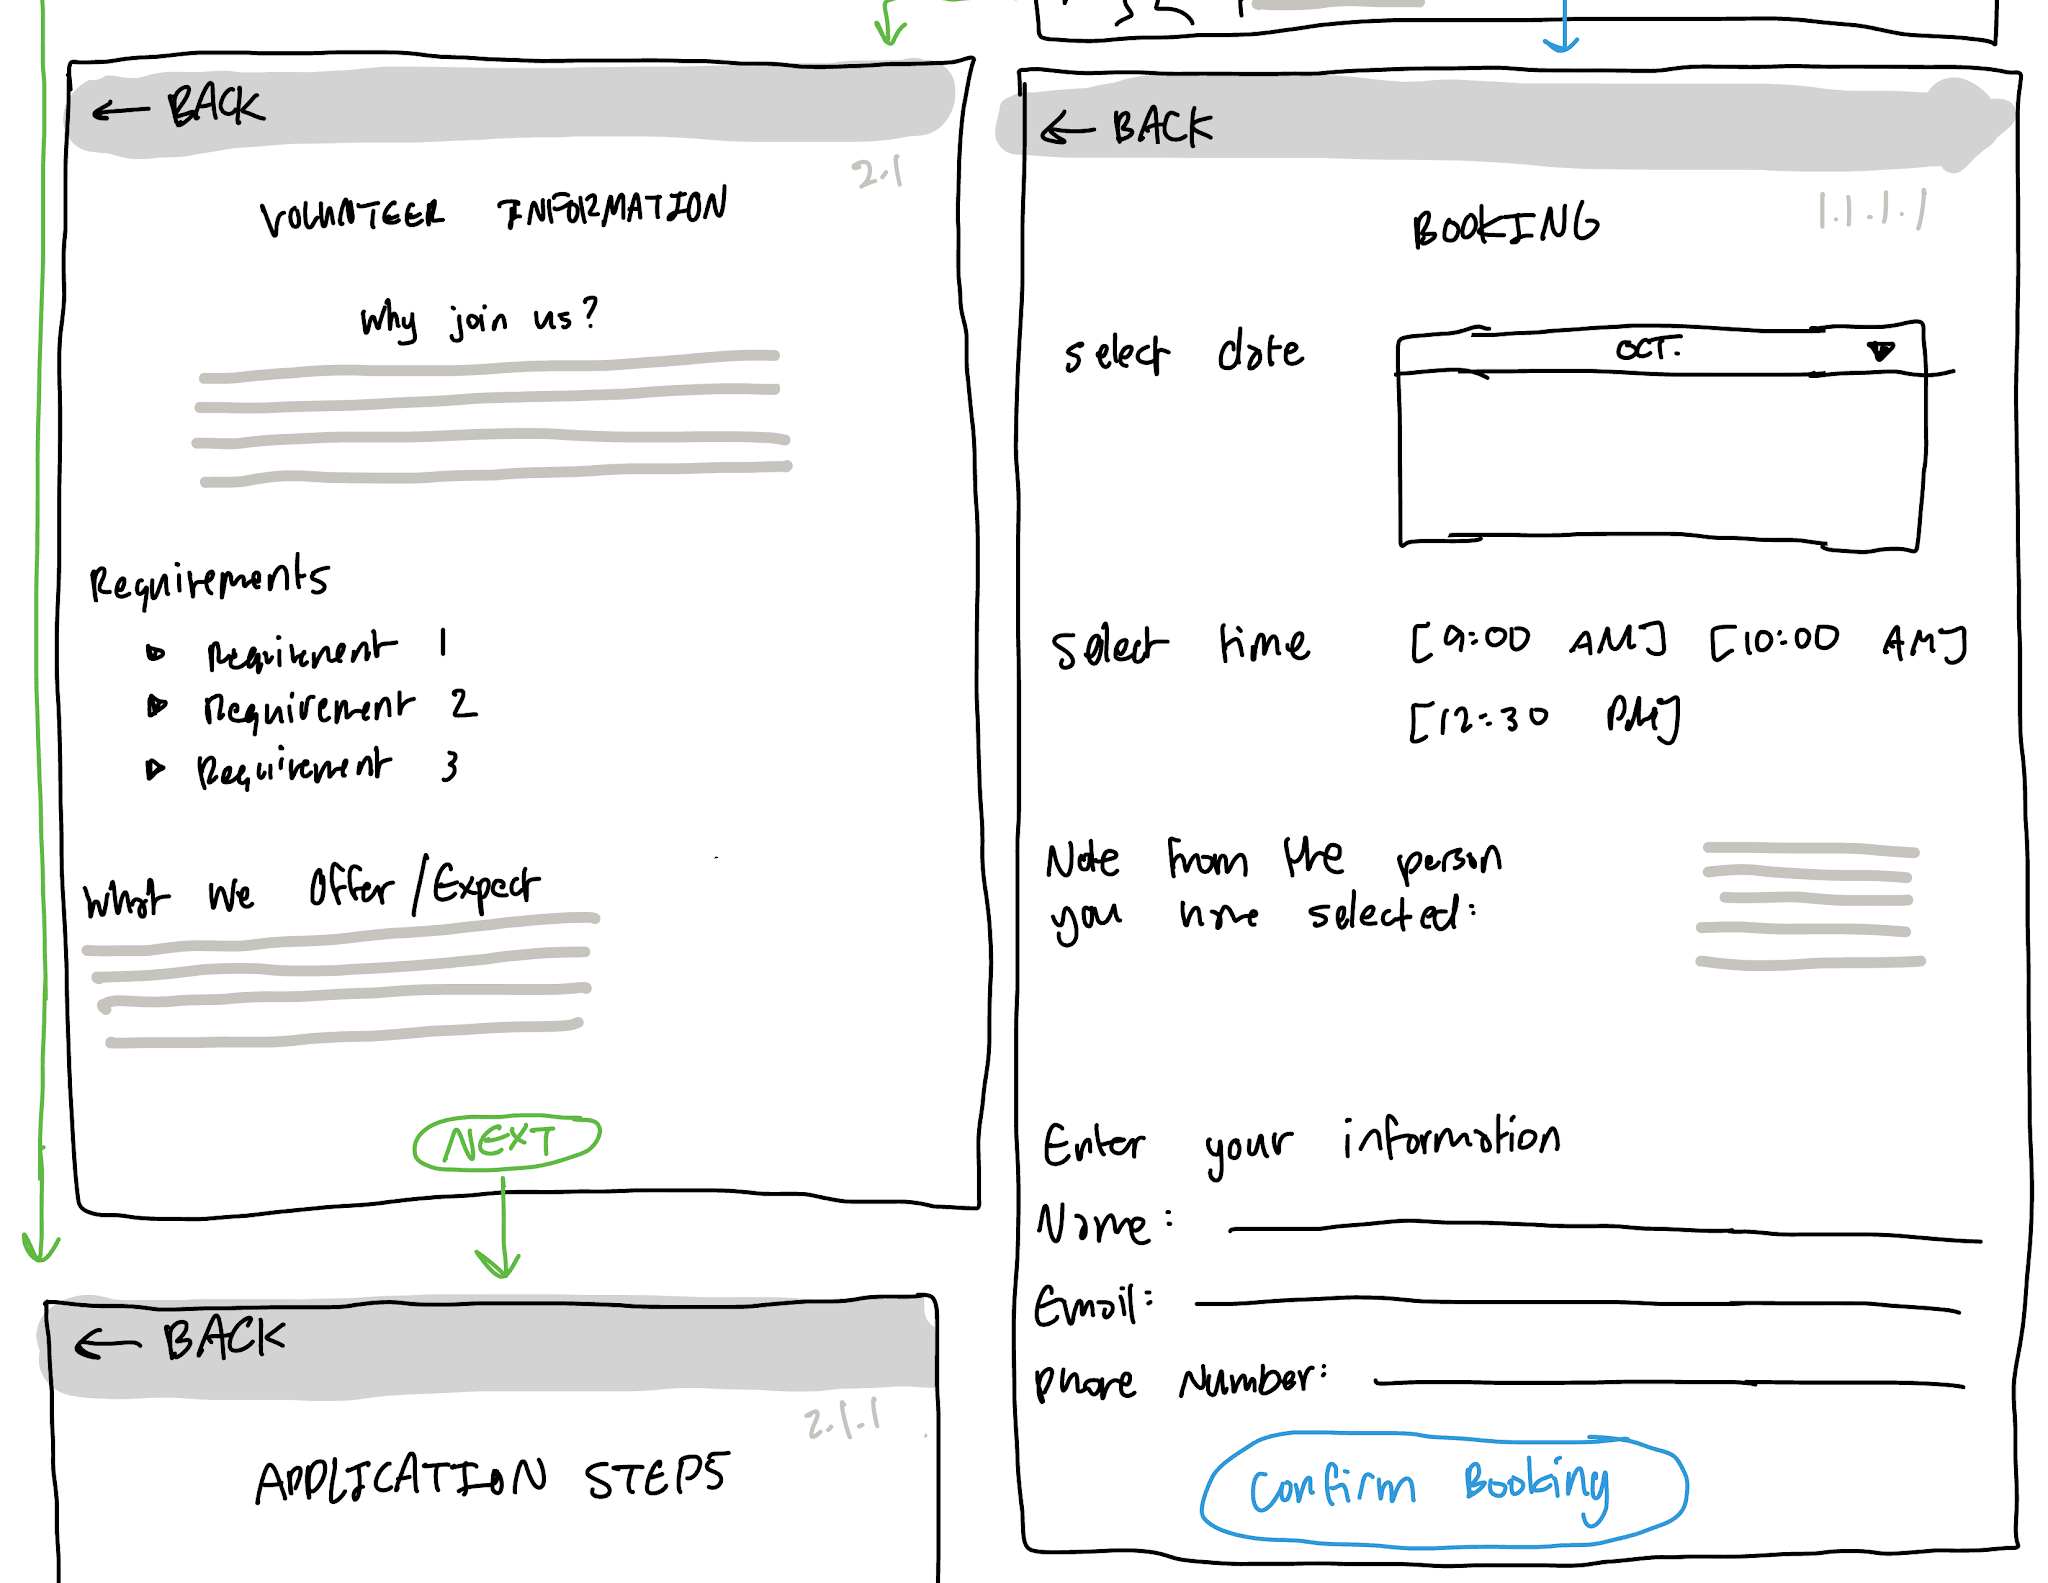 ← BACK
2.1
VOLUNTEER INFORMATION
Why join us?
Requirements
Requirement 1
Requirement 2
Requirement 3
What We Offer/Expect
NEXT
← BACK
2.1.1
APPLICATION STEPS
← BACK
1.1.1.1
BOOKING
select date
OCT.
Select time [9:00 AM] [10:00 AM]
[12:30 PM]
Note from the person
you have selected:
Enter your information
Name:
Email:
Phone Number:
Confirm Booking